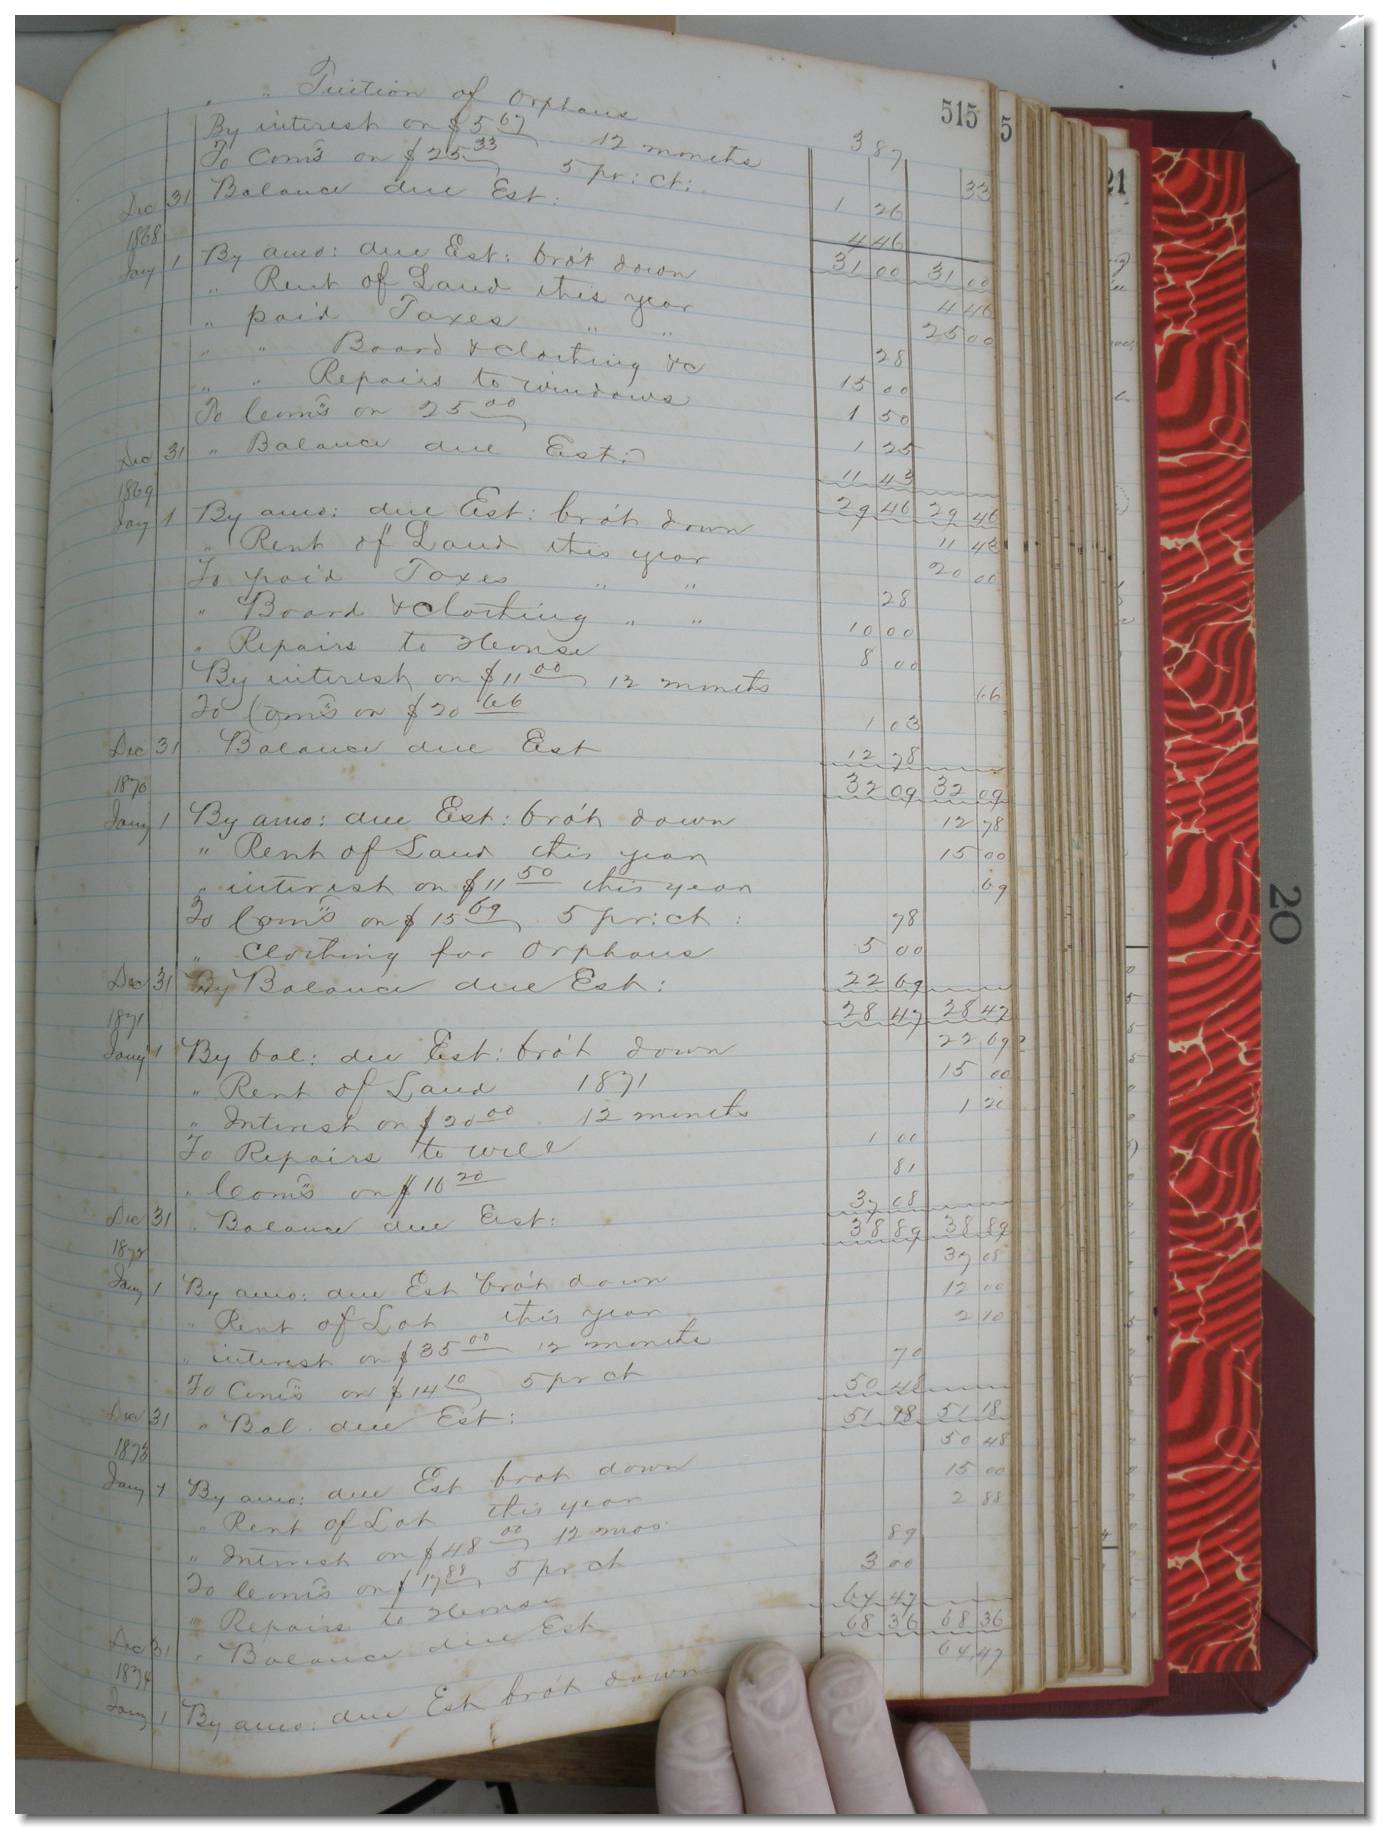 515
5
21
" " Tuition of Orphans 3 87
By interest on $5 67 12 months 33
To Coms on $25.33 5 pr: ct: 1 26
Dec 31 Balance due Est: 4 46
31 00 31 00
1868
Jany 1 By amo: due Est: bro't down 4 46
" Rent of Land this year 25 00
" paid Taxes " " 28
" " Board & Clothing &c 15 00
" " Repairs to windows 1 50
To Coms on 25 00 1 25
Dec 31 " Balance due Est: 11 43
29 46 29 46
1869
Jany 1 By amo: due Est: bro't down 11 43
" Rent of Land this year 20 00
To paid Taxes " " 28
" Board & Clothing " " 10 00
" Repairs to House 8 00
By interest on $11 00 12 months 66
To Coms on $20 66 1 03
Dec 31 " Balance due Est 12 78
32 09 32 09
1870
Jany 1 By amo: due Est: bro't down 12 78
" Rent of Land this year 15 00
" interest on $11 50 this year 69
To Coms on $15 69 5 pr: ct: 78
" Clothing for Orphans 5 00
Dec 31 By Balance due Est: 22 69
28 47 28 47
1871
Jany 1 By bal: due Est: bro't down 22 69
" Rent of Land 1871 15 00
" Interest on $20 00 12 months 1 20
To Repairs to well 1 00
" Coms on $16 20 81
Dec 31 " Balance due Est: 37 08
38 89 38 89
1872
Jany 1 By amo: due Est bro't down 37 08
" Rent of Lot this year 12 00
" interest on $35 00 12 months 2 10
To Coms on $14 10 5 pr ct 70
Dec 31 " Bal. due Est: 50 48
51 18 51 18
1873
Jany 1 By amo: due Est bro't down 50 48
" Rent of Lot this year 15 00
" Interest on $48 00 12 mos 2 88
To Coms on $17 88 5 pr ct 89
" Repairs to House 3 00
Dec 31 " Balance due Est 64 47
68 36 68 36
1874
Jany 1 By amo: due Est bro't down 64 47
20